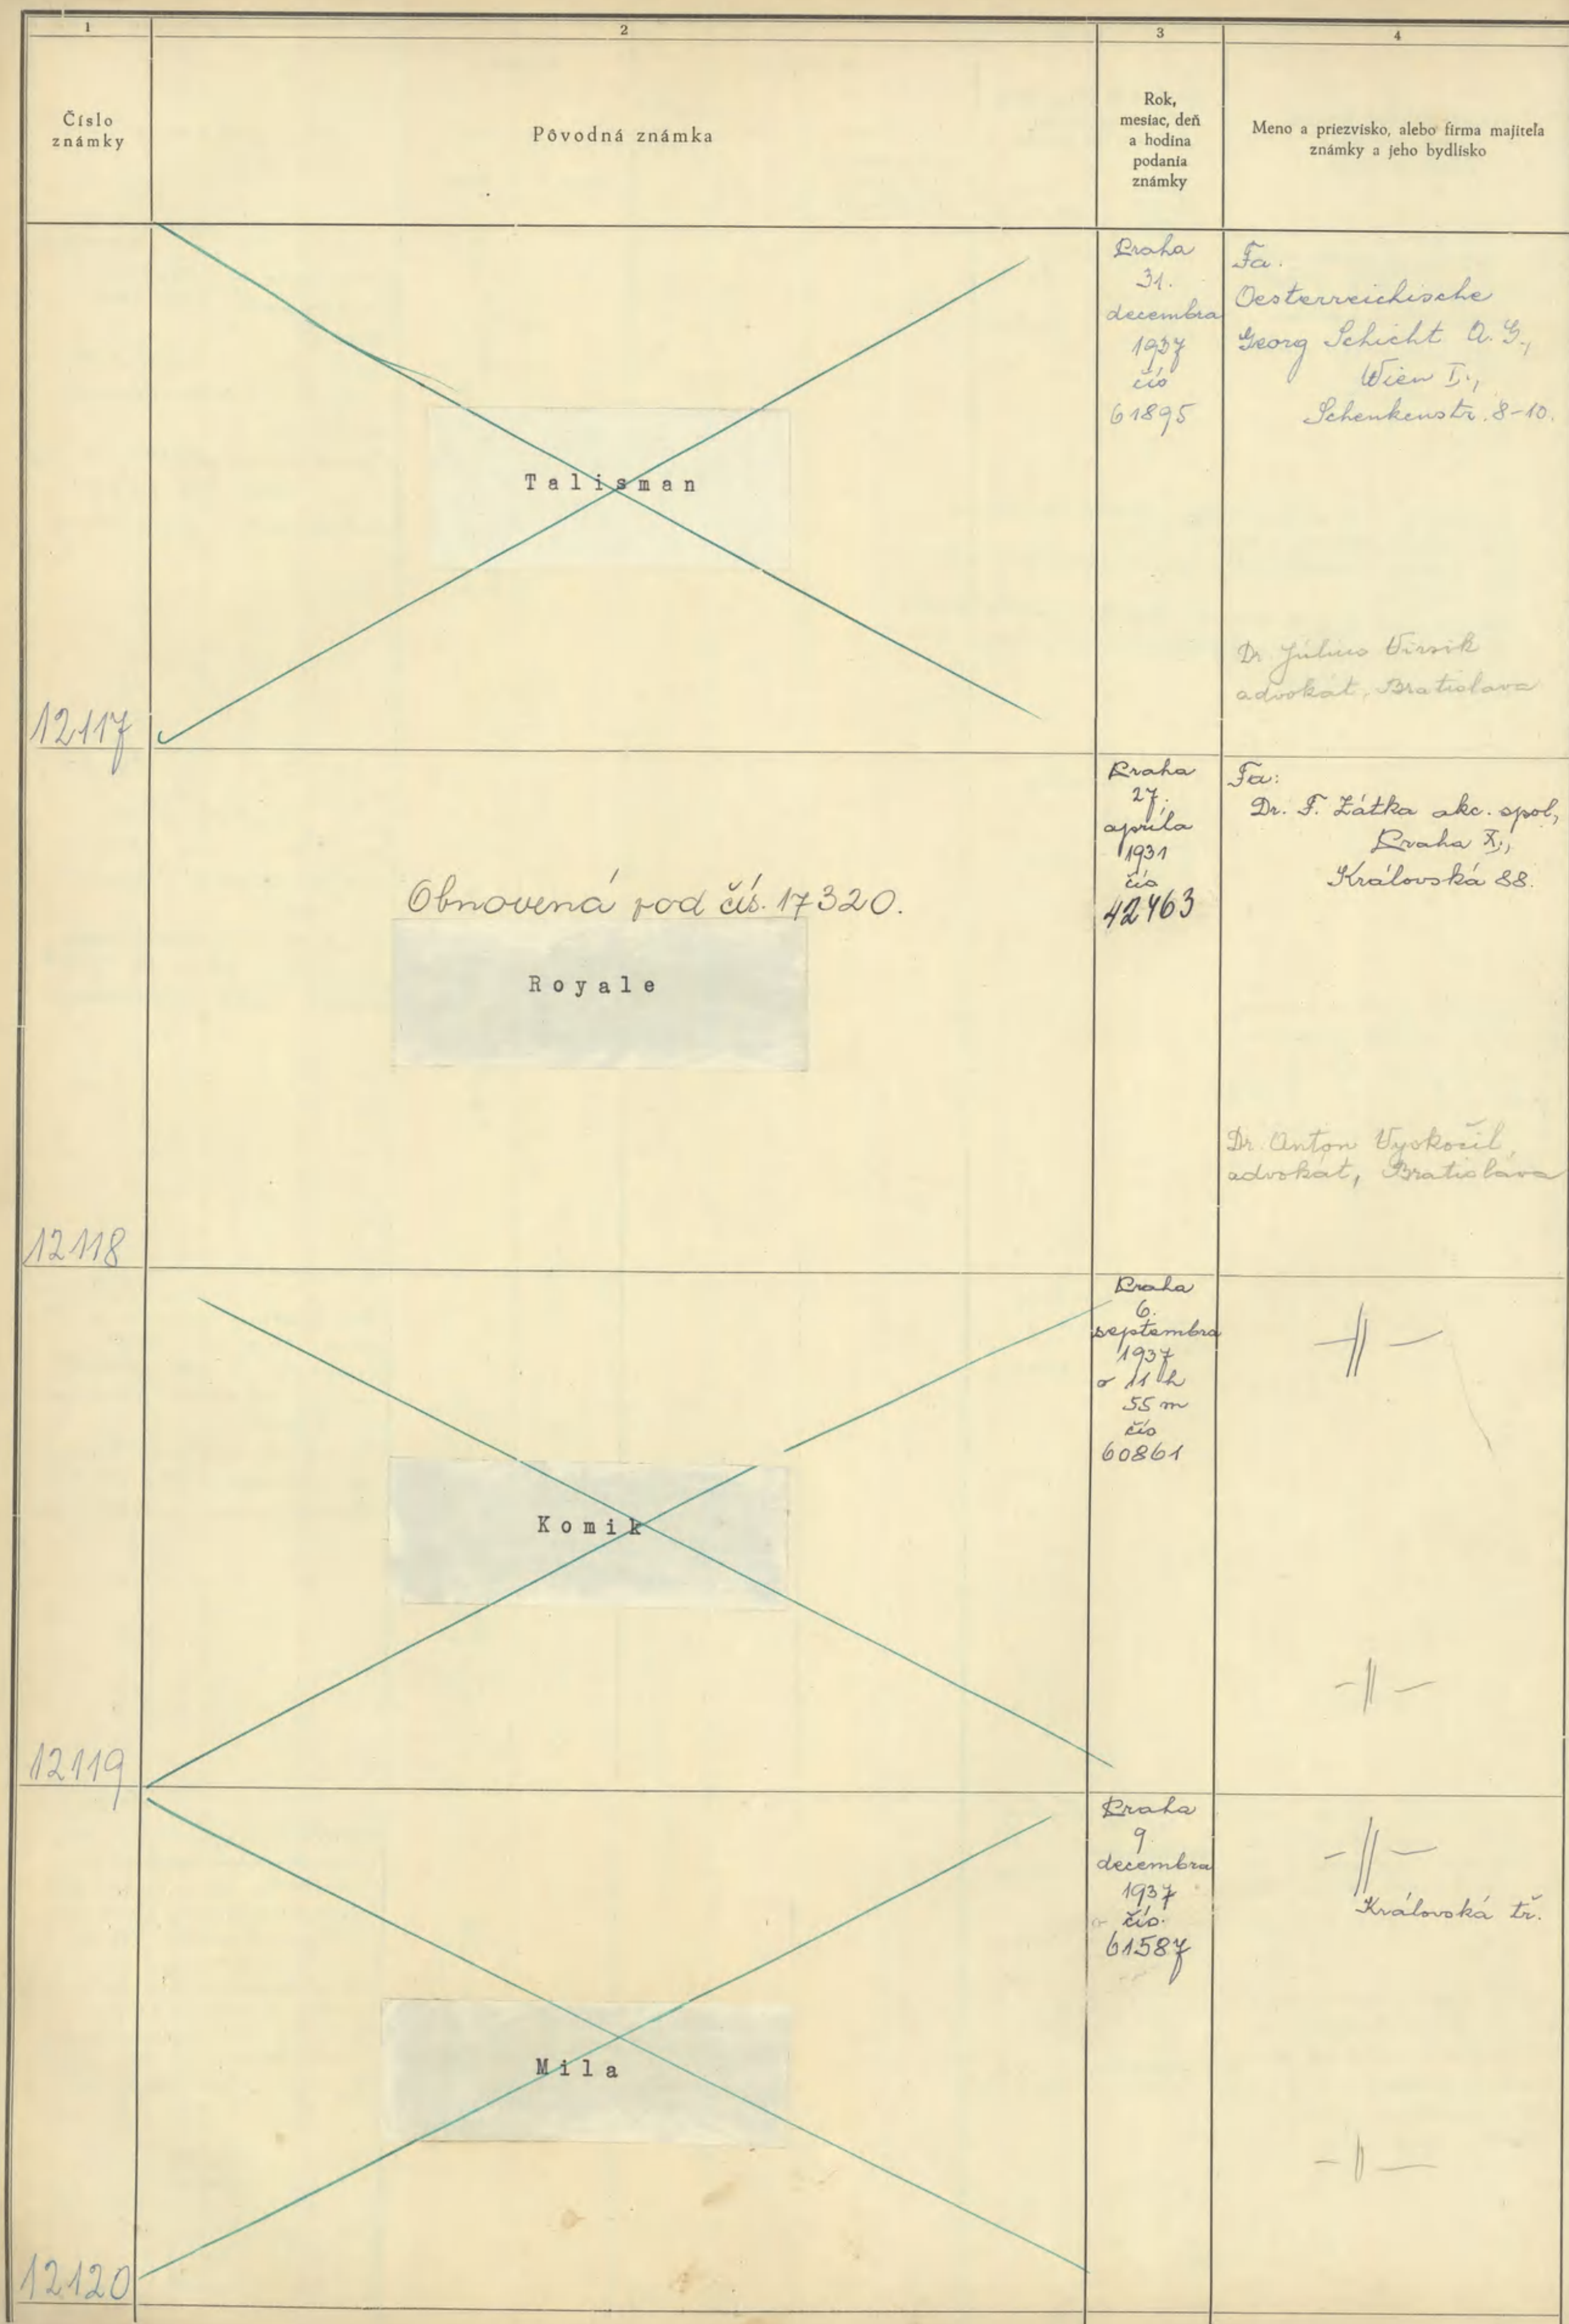 1
2
3
4
Číslo
známky
Pôvodná známka
Rok,
mesiac, deň
a hodina
podania
známky
Meno a priezvisko, alebo firma majiteľa
známky a jeho bydlisko
12117
Talisman
Praha
31.
decembra
1937
čís
61895
Fa.
Oesterreichische
Georg Schicht A.G.,
Wien I.,
Schenkenstr. 8-10.
Dr. Július Virsik
advokát, Bratislava
12118
Obnovená pod čís. 17320.
Royale
Praha
27.
apríla
1931
čís
42463
Fa:
Dr. F. Zátka akc. spol,
Praha X.,
Královská 88.
Dr. Anton Vyskočil,
advokát, Bratislava
12119
Komik
Praha
6.
septembra
1937
o 11 h
55 m
čís
60861
-||-
-||-
12120
Mila
Praha
9
decembra
1937
čís.
61587
-||-
Královská tř.
-||-